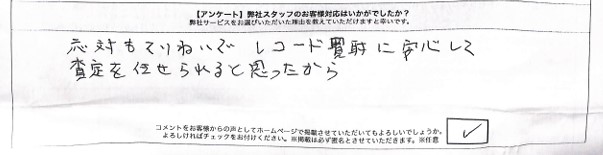 【アンケート】弊社スタッフのお客様対応はいかがでしたか？
弊社サービスをお選びいただいた理由を教えていただけますと幸いです。
応対もていねいで レコード買取に安心して
査定を任せられると思ったから
コメントをお客様からの声としてホームページで掲載させていただいてもよろしいでしょうか。
よろしければチェックをお付けください。※掲載は必ず匿名とさせていただきます。※任意
✓